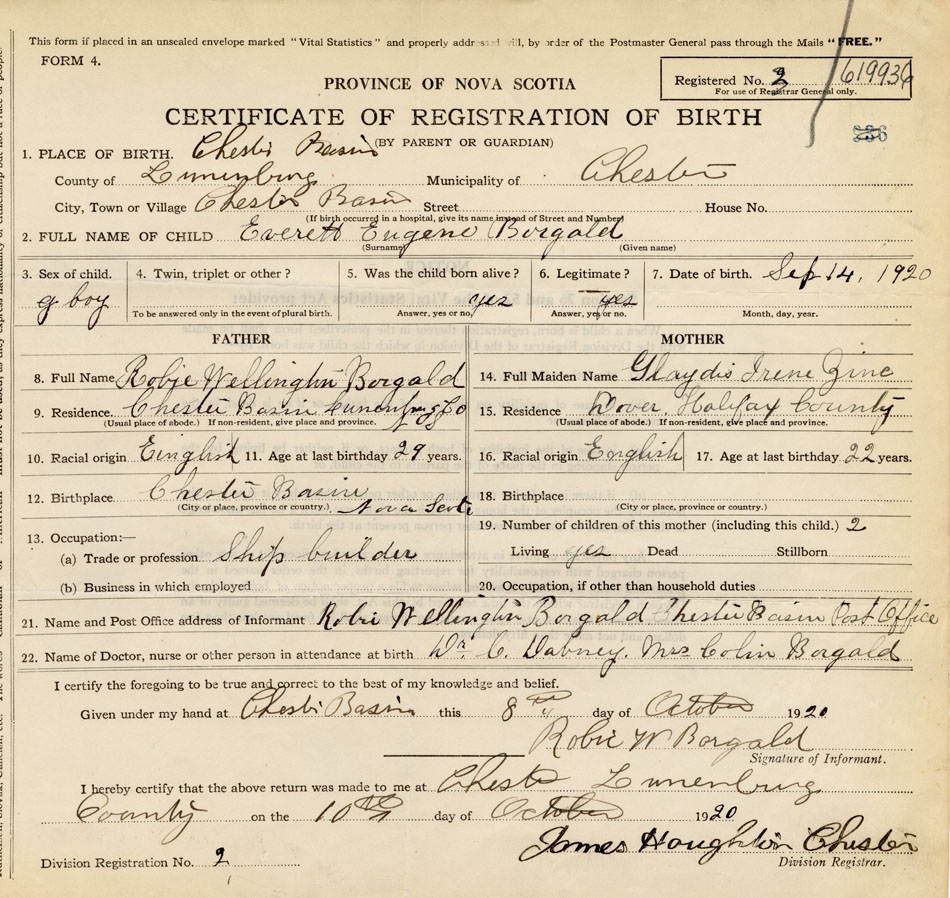 This form if placed in an unsealed envelope marked "Vital Statistics" and properly addressed will, by order of the Postmaster General pass through the Mails "FREE."
FORM 4.
Registered No. 2 619936
For use of Registrar General only.
PROVINCE OF NOVA SCOTIA
CERTIFICATE OF REGISTRATION OF BIRTH
(BY PARENT OR GUARDIAN)
1. PLACE OF BIRTH. Chester Basin
County of Lunenburg Municipality of Chester
City, Town or Village Chester Basin Street House No.
(If birth occurred in a hospital, give its name instead of Street and Number)
2. FULL NAME OF CHILD Everett Eugene Borgald
(Surname) (Given name)
3. Sex of child. 4. Twin, triplet or other? 5. Was the child born alive? 6. Legitimate? 7. Date of birth. Sep 14, 1920
boy yes yes
To be answered only in the event of plural birth. Answer, yes or no, Answer, yes or no. Month, day, year.
FATHER
8. Full Name Robie Wellington Borgald
9. Residence. Chester Basin Lunenburg Co
(Usual place of abode.) If non-resident, give place and province.
10. Racial origin Einglish 11. Age at last birthday 29 years.
12. Birthplace Chester Basin
(City or place, province or country.) Nova Scotia
13. Occupation:—
(a) Trade or profession Ship builder
(b) Business in which employed
MOTHER
14. Full Maiden Name Glaydis Irene Zinc
15. Residence Dover, Halifax County
(Usual place of abode.) If non-resident, give place and province.
16. Racial origin English 17. Age at last birthday 22 years.
18. Birthplace
(City or place, province or country.)
19. Number of children of this mother (including this child.) 2
Living yes Dead Stillborn
20. Occupation, if other than household duties
21. Name and Post Office address of Informant Robie Wellington Borgald Chester Basin Post Office
22. Name of Doctor, nurse or other person in attendance at birth Dr. C. Dabney. Mrs Colin Borgald
I certify the foregoing to be true and correct to the best of my knowledge and belief.
Given under my hand at Chester Basin this 8 th day of October 1920
Robie W Borgald
Signature of Informant.
I hereby certify that the above return was made to me at Chester Lunenburg
County on the 10th day of October 1920
James Houghton Chester
Division Registrar.
Division Registration No. 2